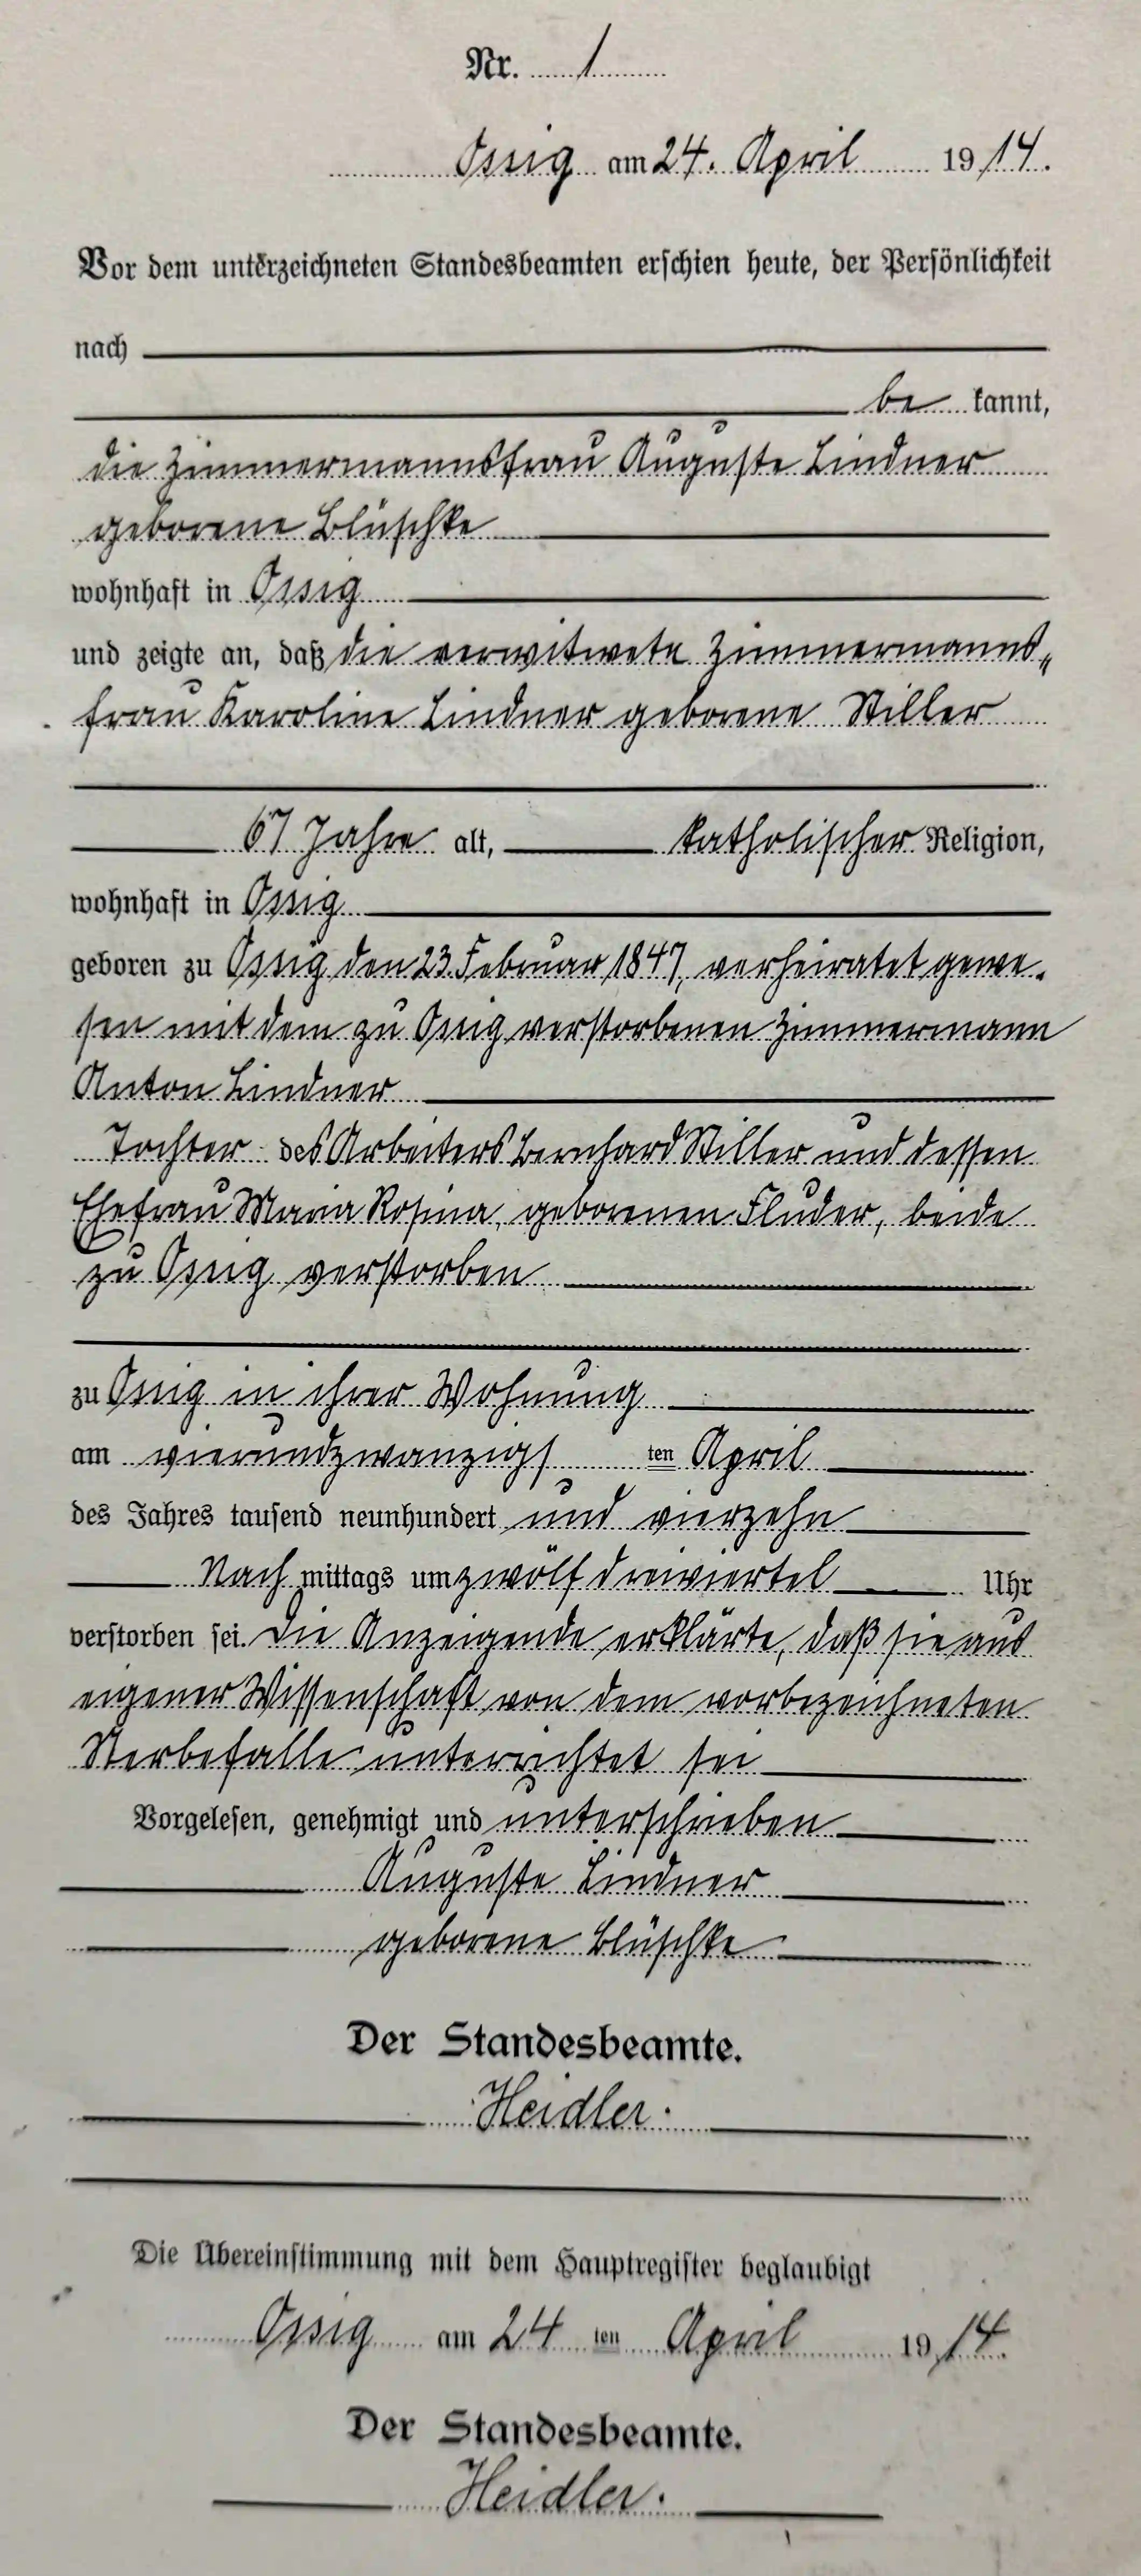 Nr. 1
Ossig am 24. April 1914.
Vor dem unterzeichneten Standesbeamten erschien heute, der Persönlichkeit
nach
be kannt,
die Zimmermannsfrau Auguste Lindner
geborene Blüschke
wohnhaft in Ossig
und zeigte an, daß die verwitwete Zimmermanns„
frau Karoline Lindner geborene Stiller
67 Jahre alt, katholischer Religion,
wohnhaft in Ossig
geboren zu Ossig den 23. Februar 1847, verheiratet gewe-
sen mit dem zu Ossig verstorbenen Zimmermann
Anton Lindner
Tochter des Arbeiters Bernhard Stiller und dessen
Ehefrau Maria Rosina, geborenen Fluder, beide
zu Ossig verstorben
zu Ossig in ihrer Wohnung
am vierundzwanzigs ten April
des Jahres tausend neunhundert und vierzehn
Nach mittags um zwölf dreiviertel Uhr
verstorben sei. Die Anzeigende erklärte, daß sie aus
eigener Wissenschaft von dem vorbezeichneten
Sterbefalle unterrichtet sei
Vorgelesen, genehmigt und unterschrieben
Auguste Lindner
geborene Blüschke
Der Standesbeamte.
Heidler.
Die Übereinstimmung mit dem Hauptregister beglaubigt
Ossig am 24 ten April 1914.
Der Standesbeamte.
Heidler.